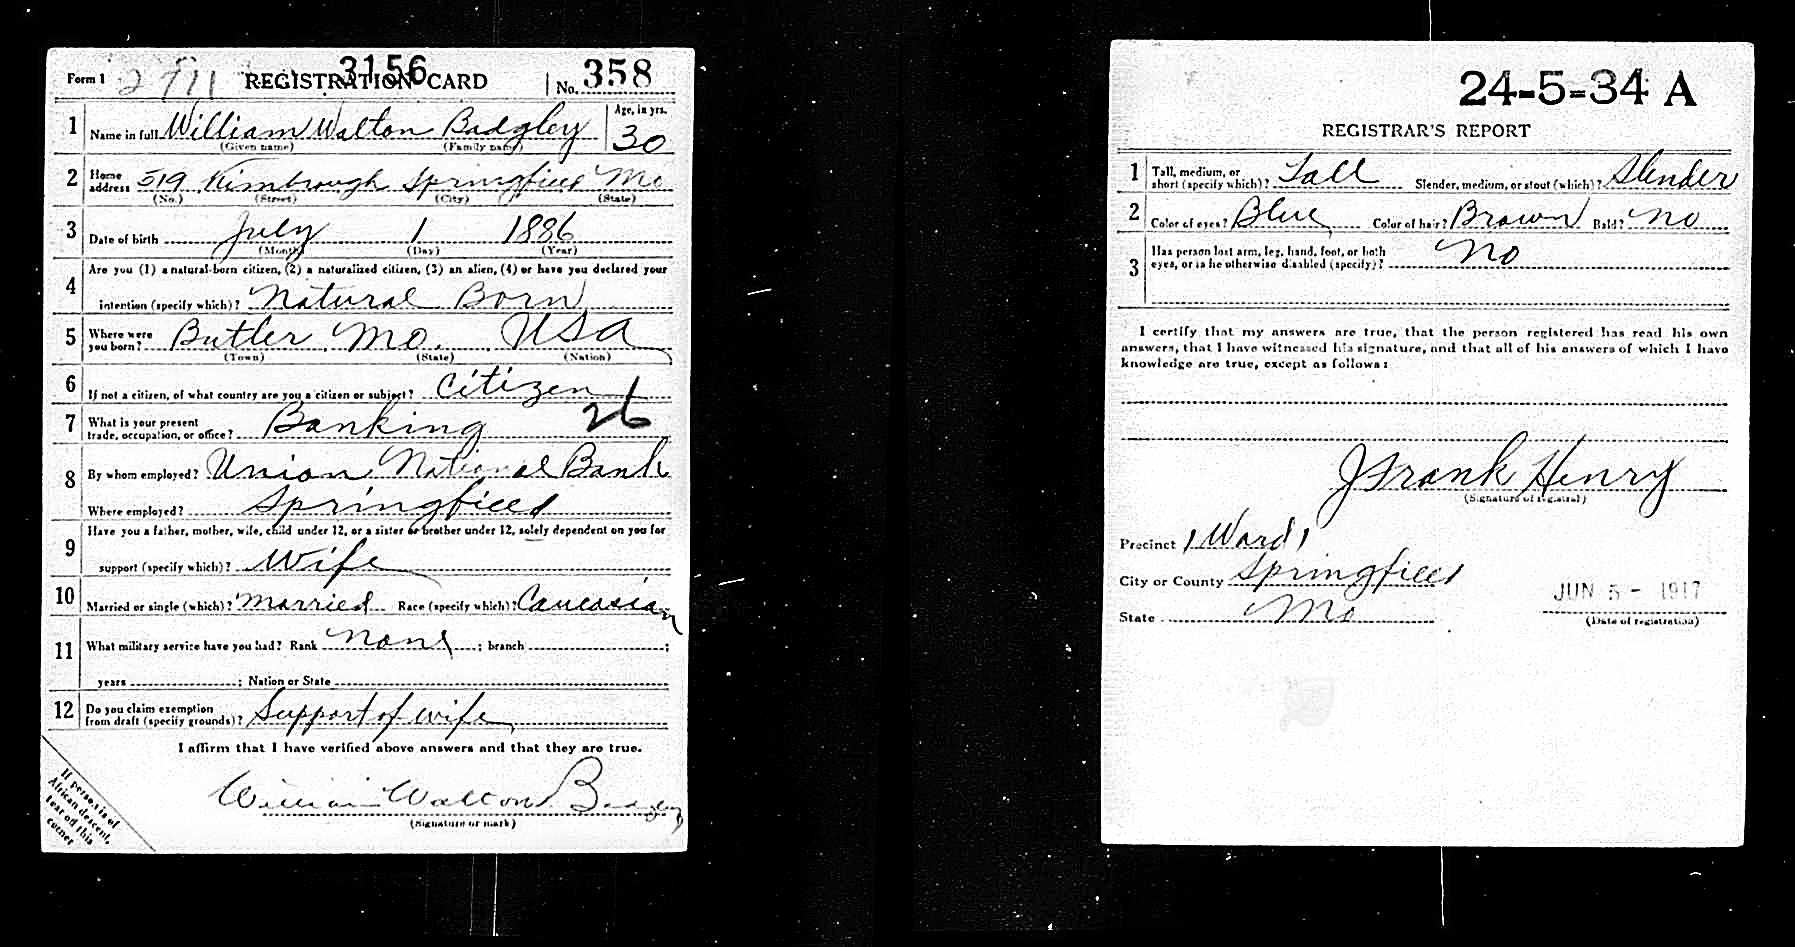 3156
Form 1 2911 REGISTRATION CARD No. 358
1 Name in full William Walton Badgley Age, in yrs. 30
(Given name) (Family name)
2 Home address 519 Kimbrough Springfield Mo
(No.) (Street) (City) (State)
3 Date of birth July 1 1886
(Month) (Day) (Year)
4 Are you (1) a natural-born citizen, (2) a naturalized citizen, (3) an alien, (4) or have you declared your
intention (specify which)? Natural Born
5 Where were you born? Butler Mo. USA
(Town) (State) (Nation)
6 If not a citizen, of what country are you a citizen or subject? Citizen
7 What is your present trade, occupation, or office? Banking 26
8 By whom employed? Union National Bank
Where employed? Springfield
9 Have you a father, mother, wife, child under 12, or a sister or brother under 12, solely dependent on you for
support (specify which)? Wife
10 Married or single (which)? Married Race (specify which)? Caucasian
11 What military service have you had? Rank None ; branch ;
years ; Nation or State
12 Do you claim exemption from draft (specify grounds)? Support of wife
I affirm that I have verified above answers and that they are true.
William Walton Badgley
(Signature or mark)
If person is of
African descent,
tear off this
corner
24-5-34 A
REGISTRAR'S REPORT
1 Tall, medium, or short (specify which)? Tall Slender, medium, or stout (which)? Slender
2 Color of eyes? Blue Color of hair? Brown Bald? No
3 Has person lost arm, leg, hand, foot, or both eyes, or is he otherwise disabled (specify)? No
I certify that my answers are true, that the person registered has read his own
answers, that I have witnessed his signature, and that all of his answers of which I have
knowledge are true, except as follows:
J Frank Henry
(Signature of registrar)
Precinct 1 Ward 1
City or County Springfield
State Mo
JUN 5 - 1917
(Date of registration)